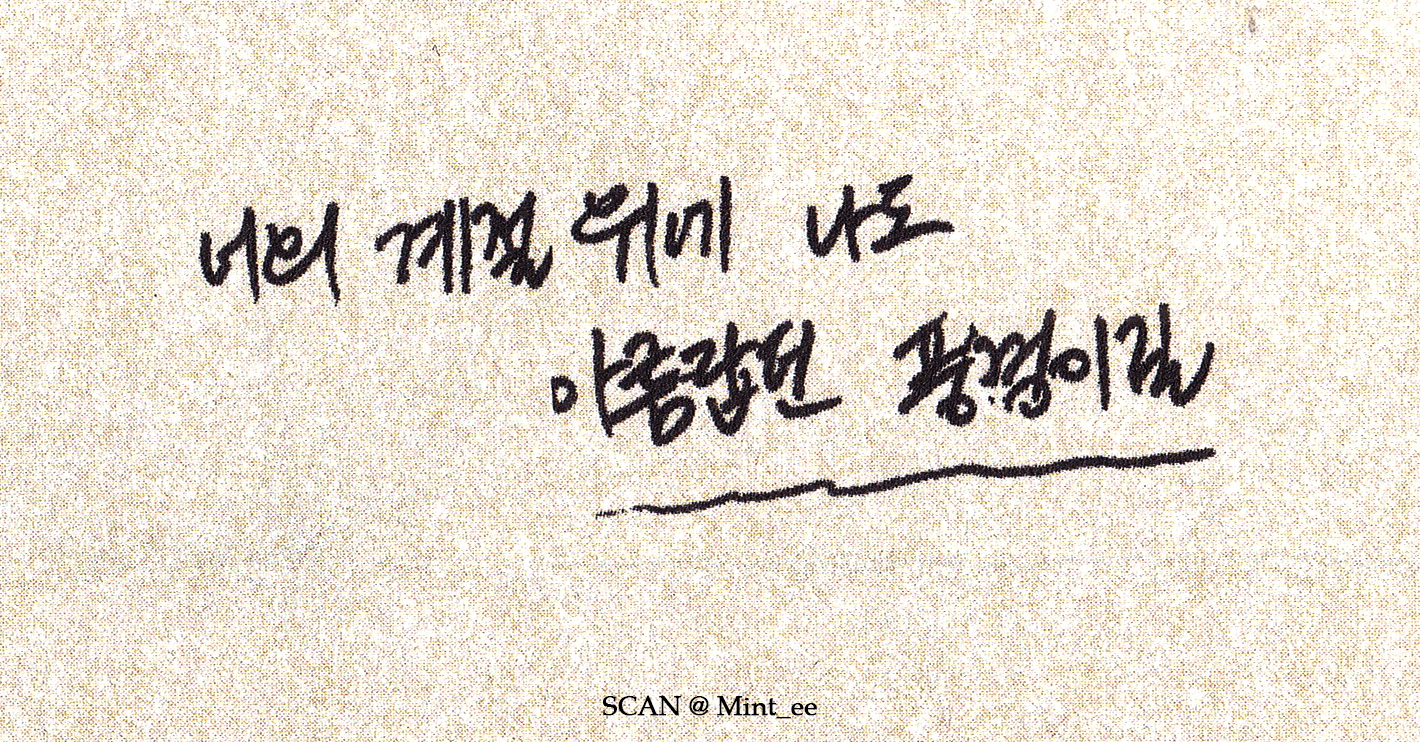 너의 계절 위에 나도
아름답던 풍경이길
SCAN @ Mint_ee